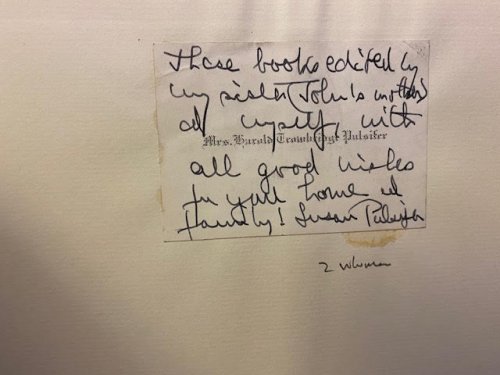 These books edited by
my sister (John's mother)
and myself, with
Mrs. Harold Trowbridge Pulsifer
all good wishes
for your home and
family! Susan Pulsifer
2 volumes